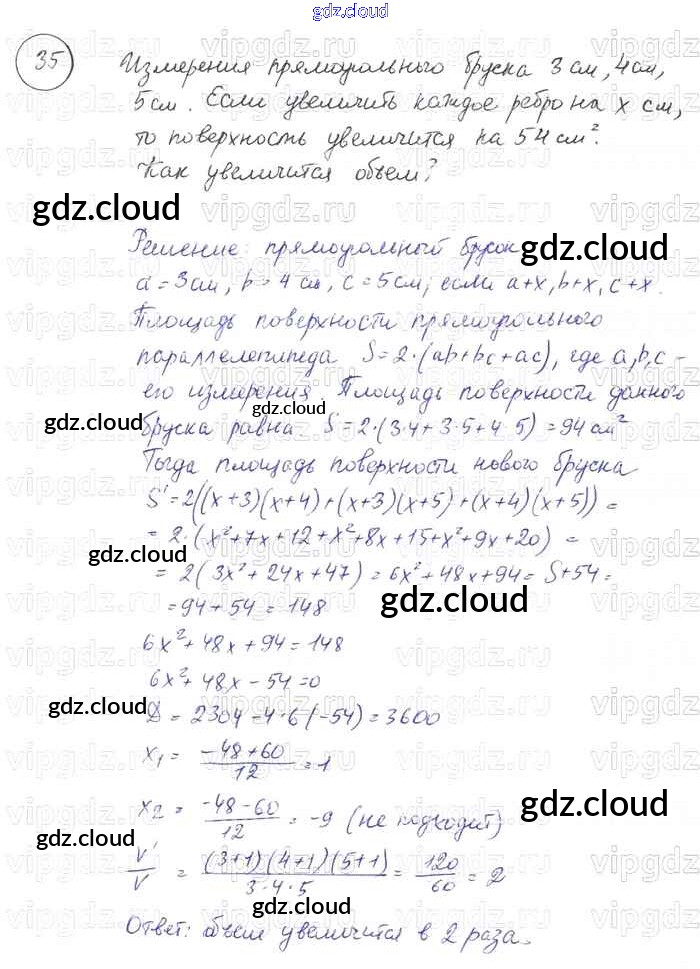 gdz.cloud
35 Измерения прямоугольного бруска 3 см, 4 см,
5 см. Если увеличить каждое ребро на x см,
то поверхность увеличится на 54 см².
Как увеличится объем?
gdz.cloud
Решение: прямоугольный брусок
gdz.cloud
a = 3 см, b = 4 см, c = 5 см; если a+x, b+x, c+x.
Площадь поверхности прямоугольного
параллелепипеда S = 2·(ab+bc+ac), где a,b,c –
его измерения. Площадь поверхности данного
gdz.cloud
gdz.cloud
бруска равна S = 2·(3·4+3·5+4·5) = 94 см²
Тогда площадь поверхности нового бруска
S' = 2((x+3)(x+4)+(x+3)(x+5)+(x+4)(x+5)) =
= 2·(x²+7x+12+x²+8x+15+x²+9x+20) =
gdz.cloud
= 2(3x²+24x+47) = 6x²+48x+94 = S+54 =
= 94+54 = 148
gdz.cloud
6x²+48x+94 = 148
6x²+48x-54 = 0
gdz.cloud
D = 2304-4·6(-54) = 3600
x₁ = (-48+60)/12 = 1
x₂ = (-48-60)/12 = -9 (не подходит)
gdz.cloud
gdz.cloud
V'/V = (3+1)(4+1)(5+1)/3·4·5 = 120/60 = 2
gdz.cloud
Ответ: объем увеличится в 2 раза.